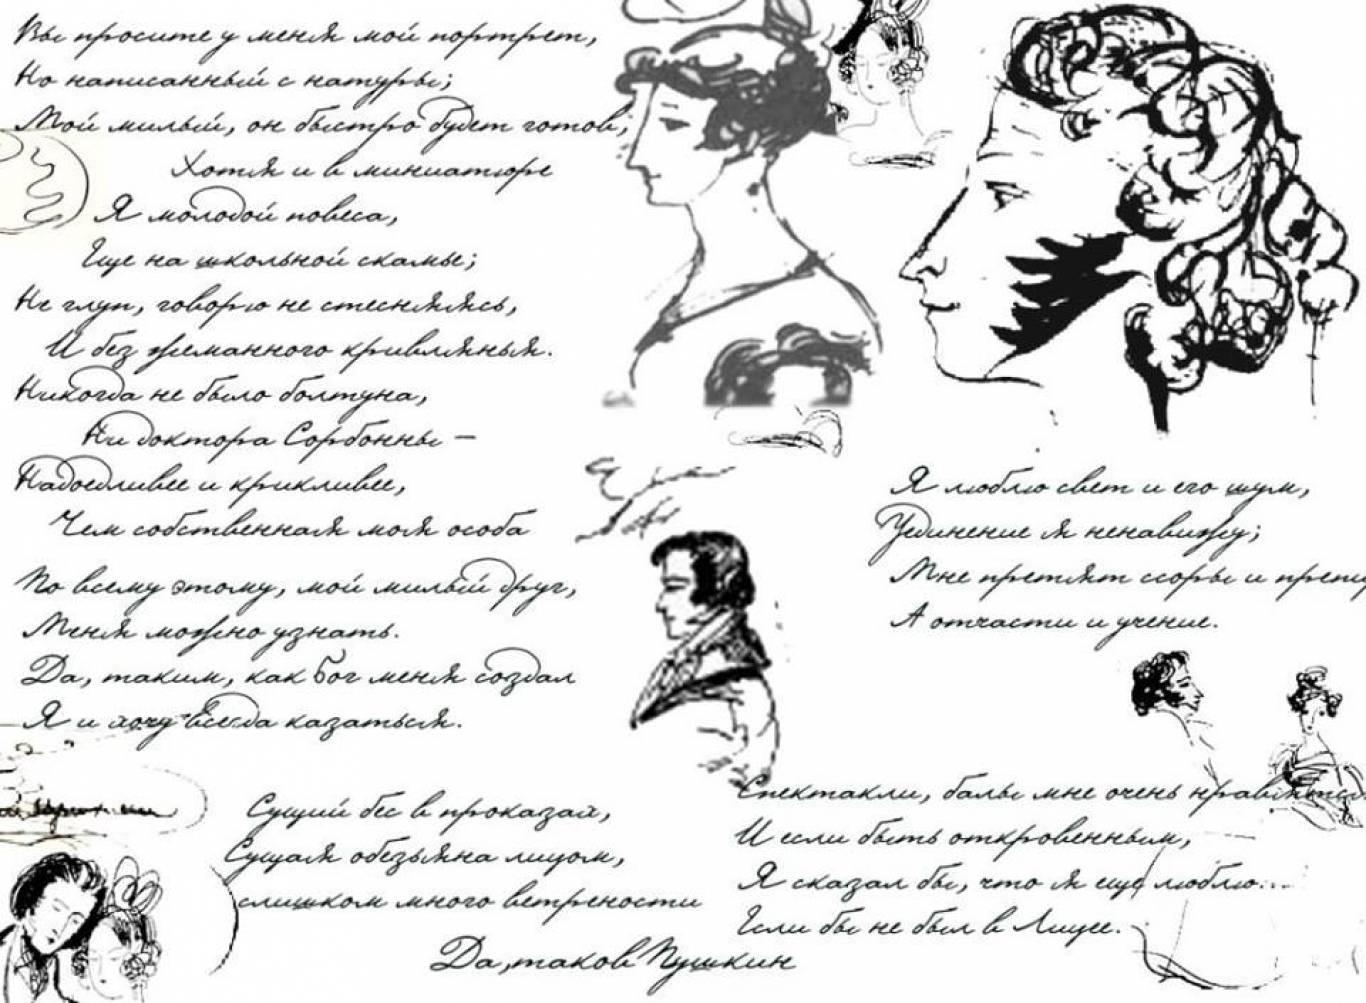 Вы просите у меня мой портрет,
Но написанный с натуры;
Мой милый, он быстро будет готов,
Хотя и в миниатюре
Я молодой повеса,
Еще на школьной скамье;
Не глуп, говорю не стесняясь,
И без жеманного кривлянья.
Никогда не было болтуна,
Ни доктора Сорбонны -
Надоедливее и крикливее,
Чем собственная моя особа
По всему этому, мой милый друг,
Меня можно узнать.
Да, таким, как Бог меня создал
Я и хочу всегда казаться.
Сущий бес в проказах,
Сущая обезьяна лицом,
слишком много ветрености
Да, таков Пушкин
Я люблю свет и его шум,
Уединение я ненавижу;
Мне претят ссоры и препи
А отчасти и учение.
Спектакли, балы мне очень нравятся
И если быть откровенным,
Я сказал бы, что я еще люблю...
Если бы не был в Лицее.